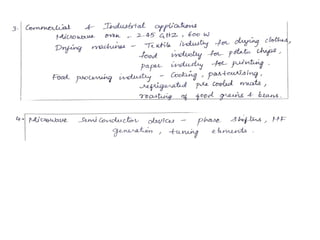 3. Commercial & Industrial applications
Microwave oven - 2.45 GHZ, 600 W
Drying machines - Textile industry for drying clothes,
food industry for potato chips,
paper industry for printing.
Food processing industry - Cooking, pasteurising,
refrigerated pre cooked meats,
roasting of food grains & beans.
4. Microwave Semiconductor devices - phase shifters, HF
generation, tuning elements.